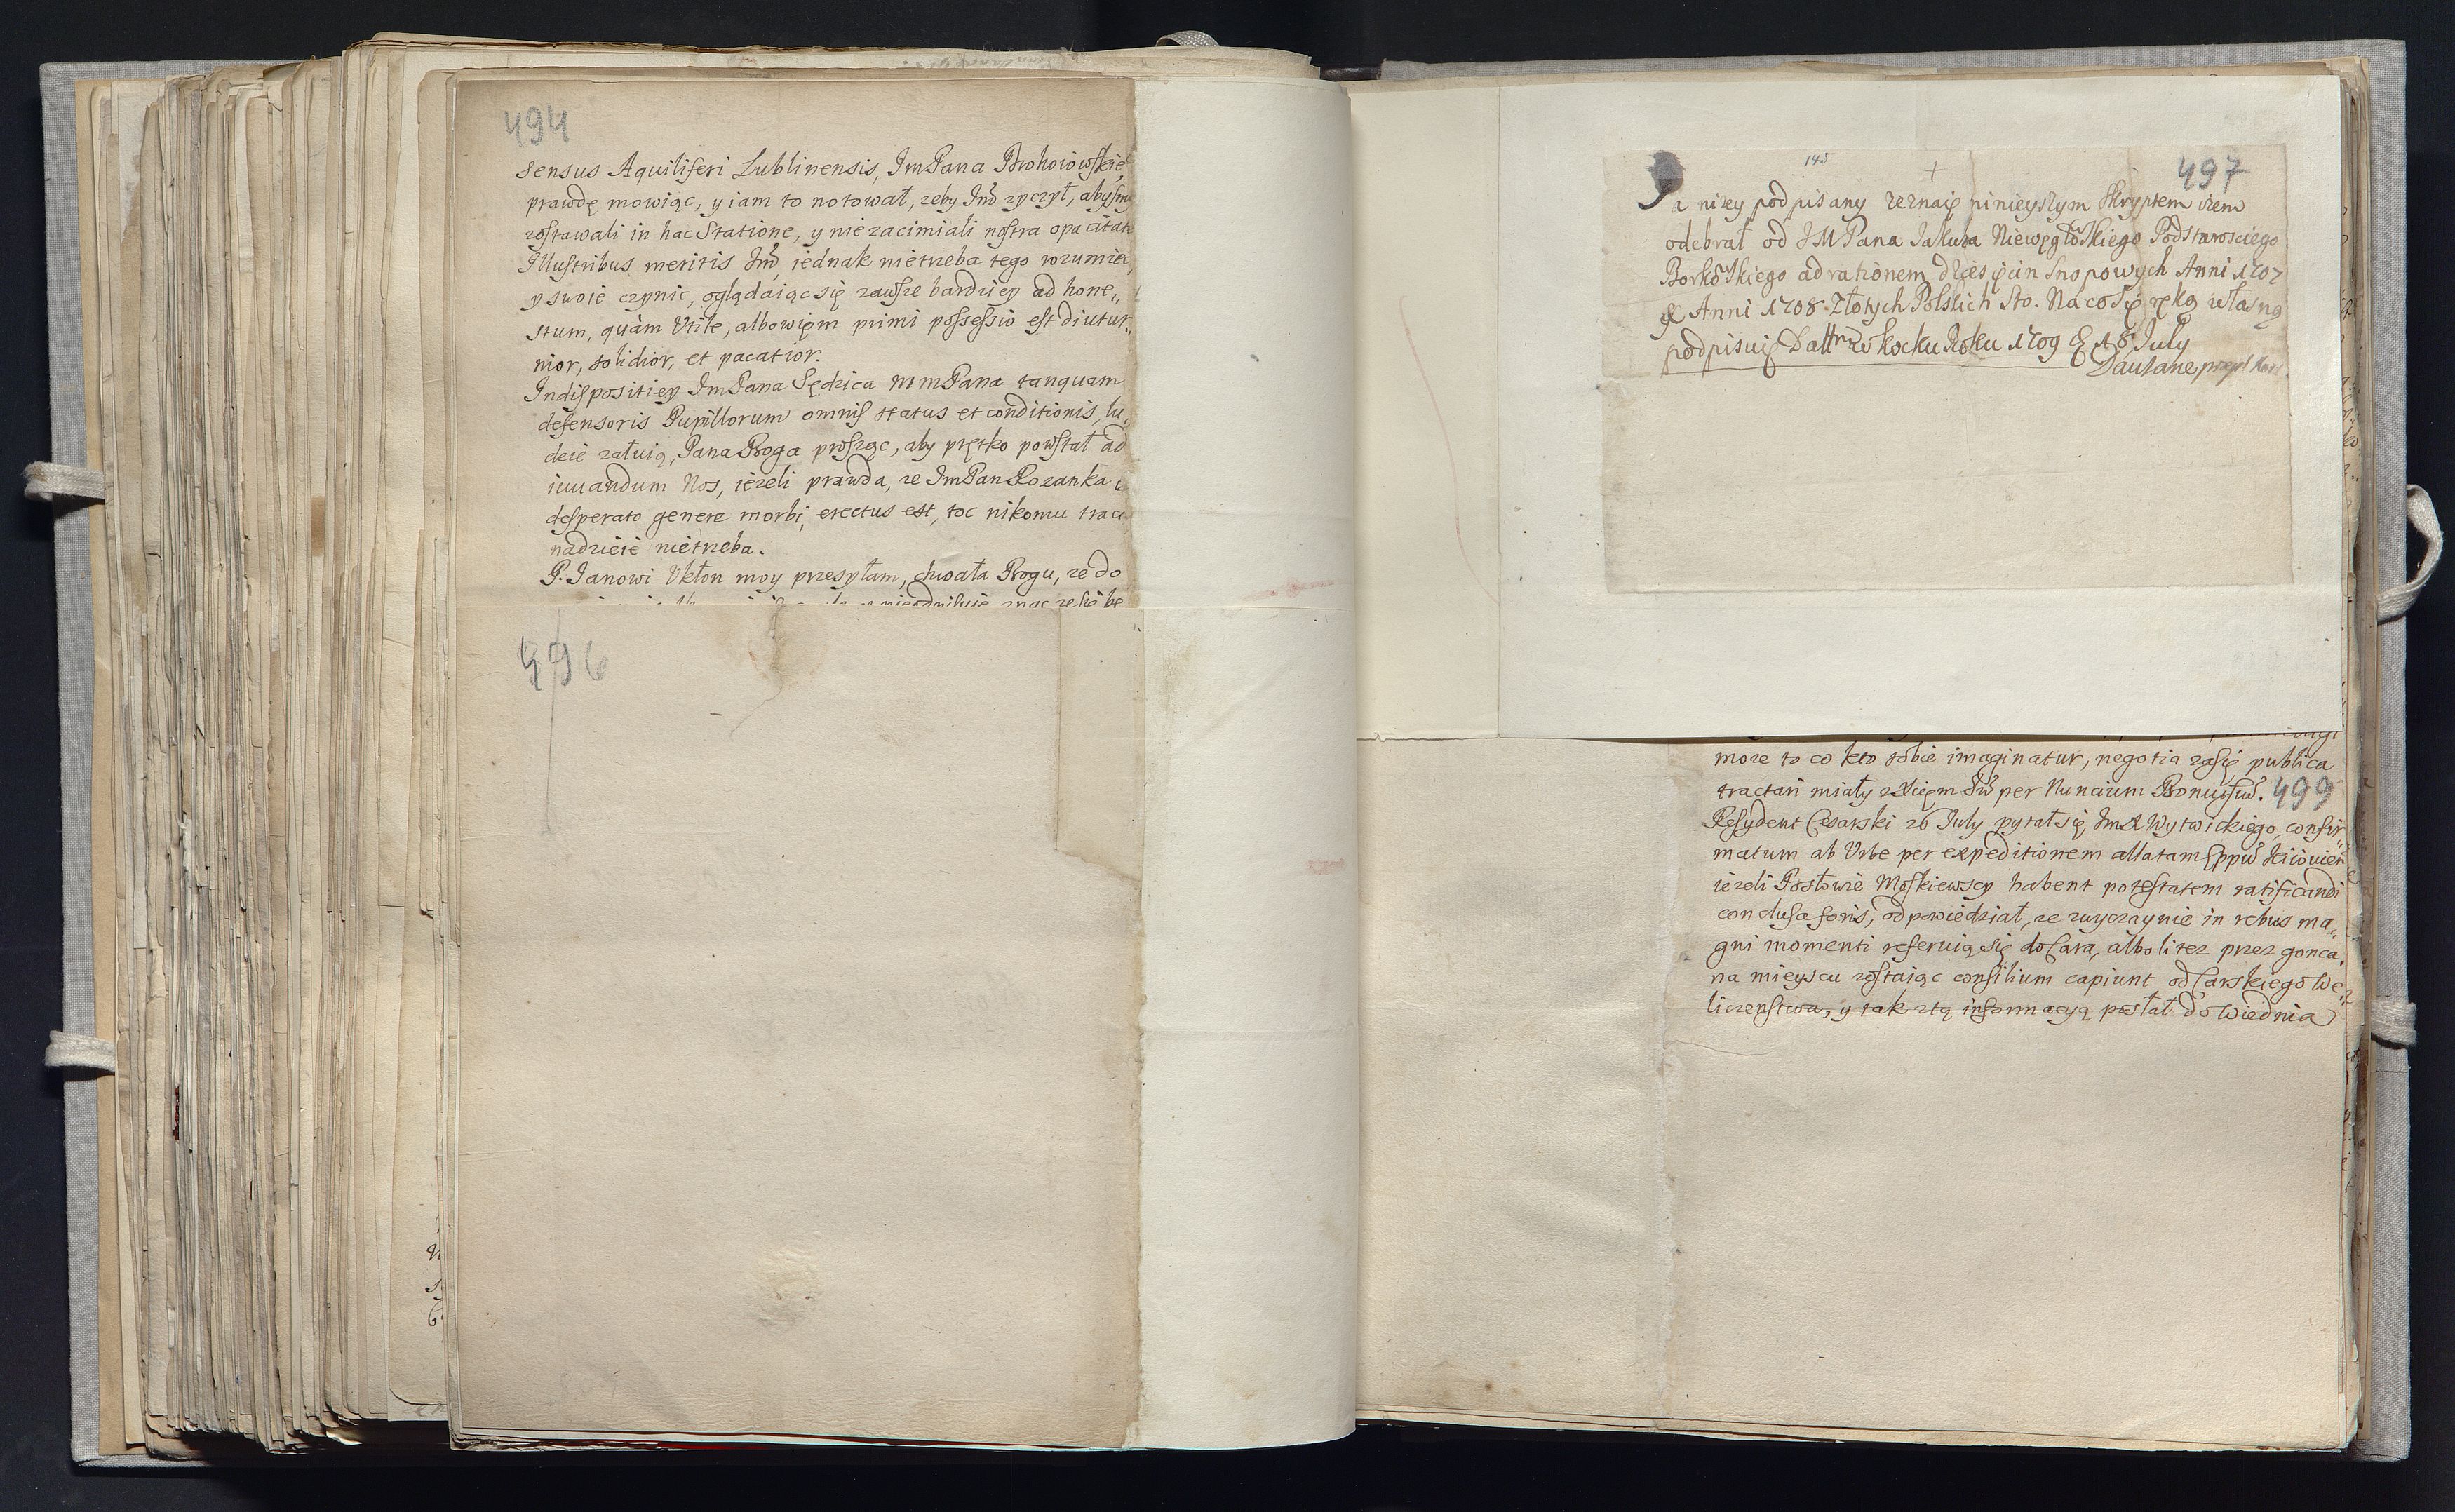 494
sensus Aquiliferi Lublinensis, JmPana
prawdę mowiąc, y iam to notował, zeby Jmć zyczył, abysmy
zostawali in hac Statione, y nie zacimiali nostra opacitate
Illustribus meritis Jmć, iednak nietrzeba tego rozumieć,
y swoie czynic, oglądaiąc się zawsze bardziey ad hone„
stum, quàm Vtile, albowięm primi possessio est diutur„
nior, solidior, et pacatior.
Indispositiey JmPana Sędzica MmPana tanquam
defensoris Pupillorum omnis status et conditionis, lu„
dzie załuią, Pana Boga prosząc, aby prętko powstał ad
iuuandum Nos, iezeli prawda, ze JmPan Rozanka
desperato genere morbi, erectus est, toc nikomu
nadzieie nietrzeba.
P. Janowi Vkłon moy przesyłam, chwała Bogu, ze do
496
145
497
Ja nizey podpisany zeznaię ninieyszym Skryptem izem
odebrał od JMPana Jakuba Niewęgłowskiego Podstarosciego
Borkowskiego ad rationem dziesięcin snopowych Anni 1707
& Anni 1708 Złotych Polskich Sto. Na co się ręką własną
podpisuię Dattm w Kocku Roku 1709 18 July
moze to co kto sobie imaginatur, negotia zasię publica
tractari miały per Nuncium
499
Resydent Cesarski 26 July pytał się Wytwickiego, confir„
matum ab Vrbe per expeditionem allatam
iezeli Posłowie Moskiewscy habent potestatem ratificandi
conclusa foris, odpowiedział, ze zwyczaynie in rebus ma„
gni momenti referuią się do Cara, albo litez przez gonca,
na mieyscu zostaiąc consilium capiunt od Carskiego We„
liczenstwa, y tak ztą informacyą posłał do Wiednia